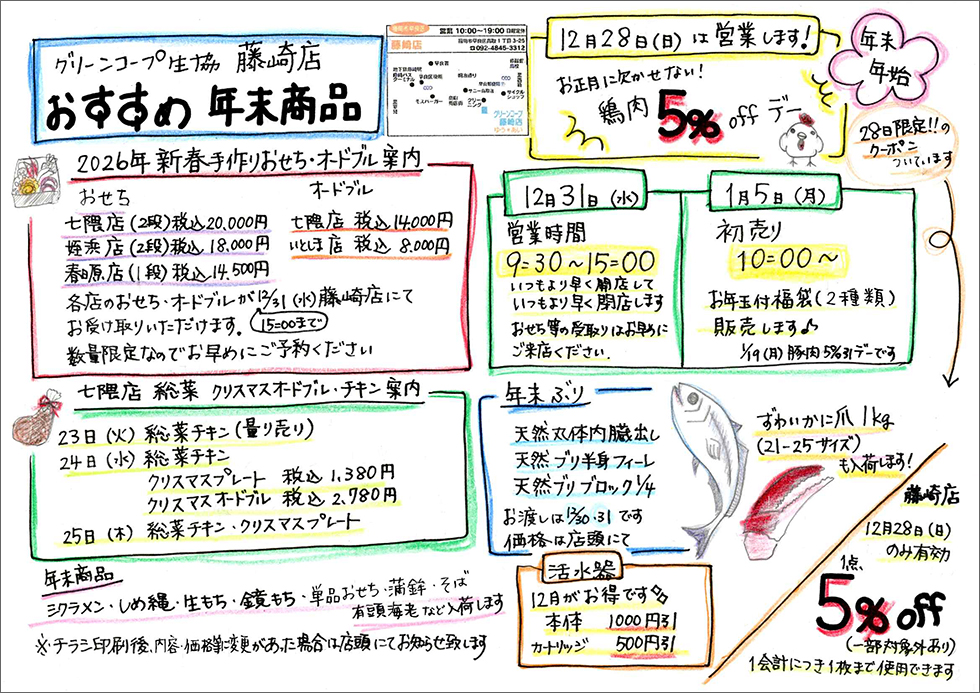 グリーンコープ生協 藤崎店
おすすめ 年末商品
営業 10:00～19:00 日曜定休
藤崎店
福岡市早良区高取1丁目3-25
☎092-4845-3312
グリーンコープ
藤崎店
ゆう・あい
12月28日(日)は営業します!
お正月に欠かせない!
鶏肉 5% off デー
年末
年始
28日限定!!の
クーポン
ついています
2026年 新春手作りおせち・オードブル案内
おせち
七隈店(2段)税込20,000円
姪浜店(2段)税込18,000円
春日原店(1段)税込14,500円
オードブル
七隈店 税込14,000円
いとしま店 税込 8,000円
各店のおせち・オードブルが12/31(水)藤崎店にて
お受け取りいただけます。 15=00まで
数量限定なのでお早めにご予約ください
12月31日(水)
営業時間
9=30～15=00
いつもより早く開店して
いつもより早く閉店します
おせち等の受取りはお早めに
ご来店ください.
1月5日(月)
初売り
10=00～
お年玉付福袋(2種類)
販売します♪
1/19(月)豚肉5%引デーです
七隈店 総菜 クリスマスオードブル・チキン案内
23日(火) 総菜チキン(量り売り)
24日(水) 総菜チキン
クリスマスプレート 税込 1,380円
クリスマスオードブル 税込 2,780円
25日(木) 総菜チキン・クリスマスプレート
年末ぶり
天然丸体内臓出し
天然ブリ半身フィーレ
天然ブリブロック1/4
お渡しは12/30・31です
価格は店頭にて
ずわいかに爪 1kg
(21-25サイズ)
も入荷します!
活水器
12月がお得です
本体 1000円引
カートリッジ 500円引
藤崎店
12月28日(日)
のみ有効
1点、
5% off
(一部対象外あり)
1会計につき1枚まで使用できます
年末商品
シクラメン・しめ縄・生もち・鏡もち・単品おせち・蒲鉾・そば
有頭海老など入荷します
※チラシ印刷後、内容・価格等に変更があった場合は店頭にてお知らせ致します